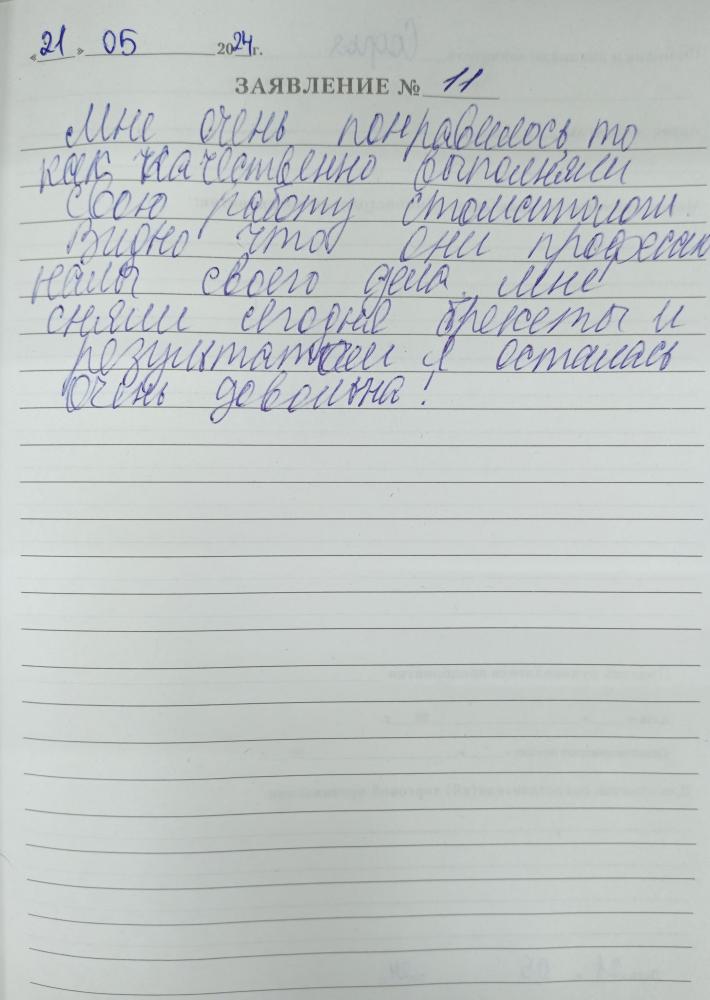 « 21 » 05 2024 г.
ЗАЯВЛЕНИЕ № 11
Мне очень понравилось то
как качественно выполняли
свою работу стоматологи.
Видно что они професио
налы своего дела. Мне
сняли сегодня брекеты и
результатом я осталась
очень довольна!